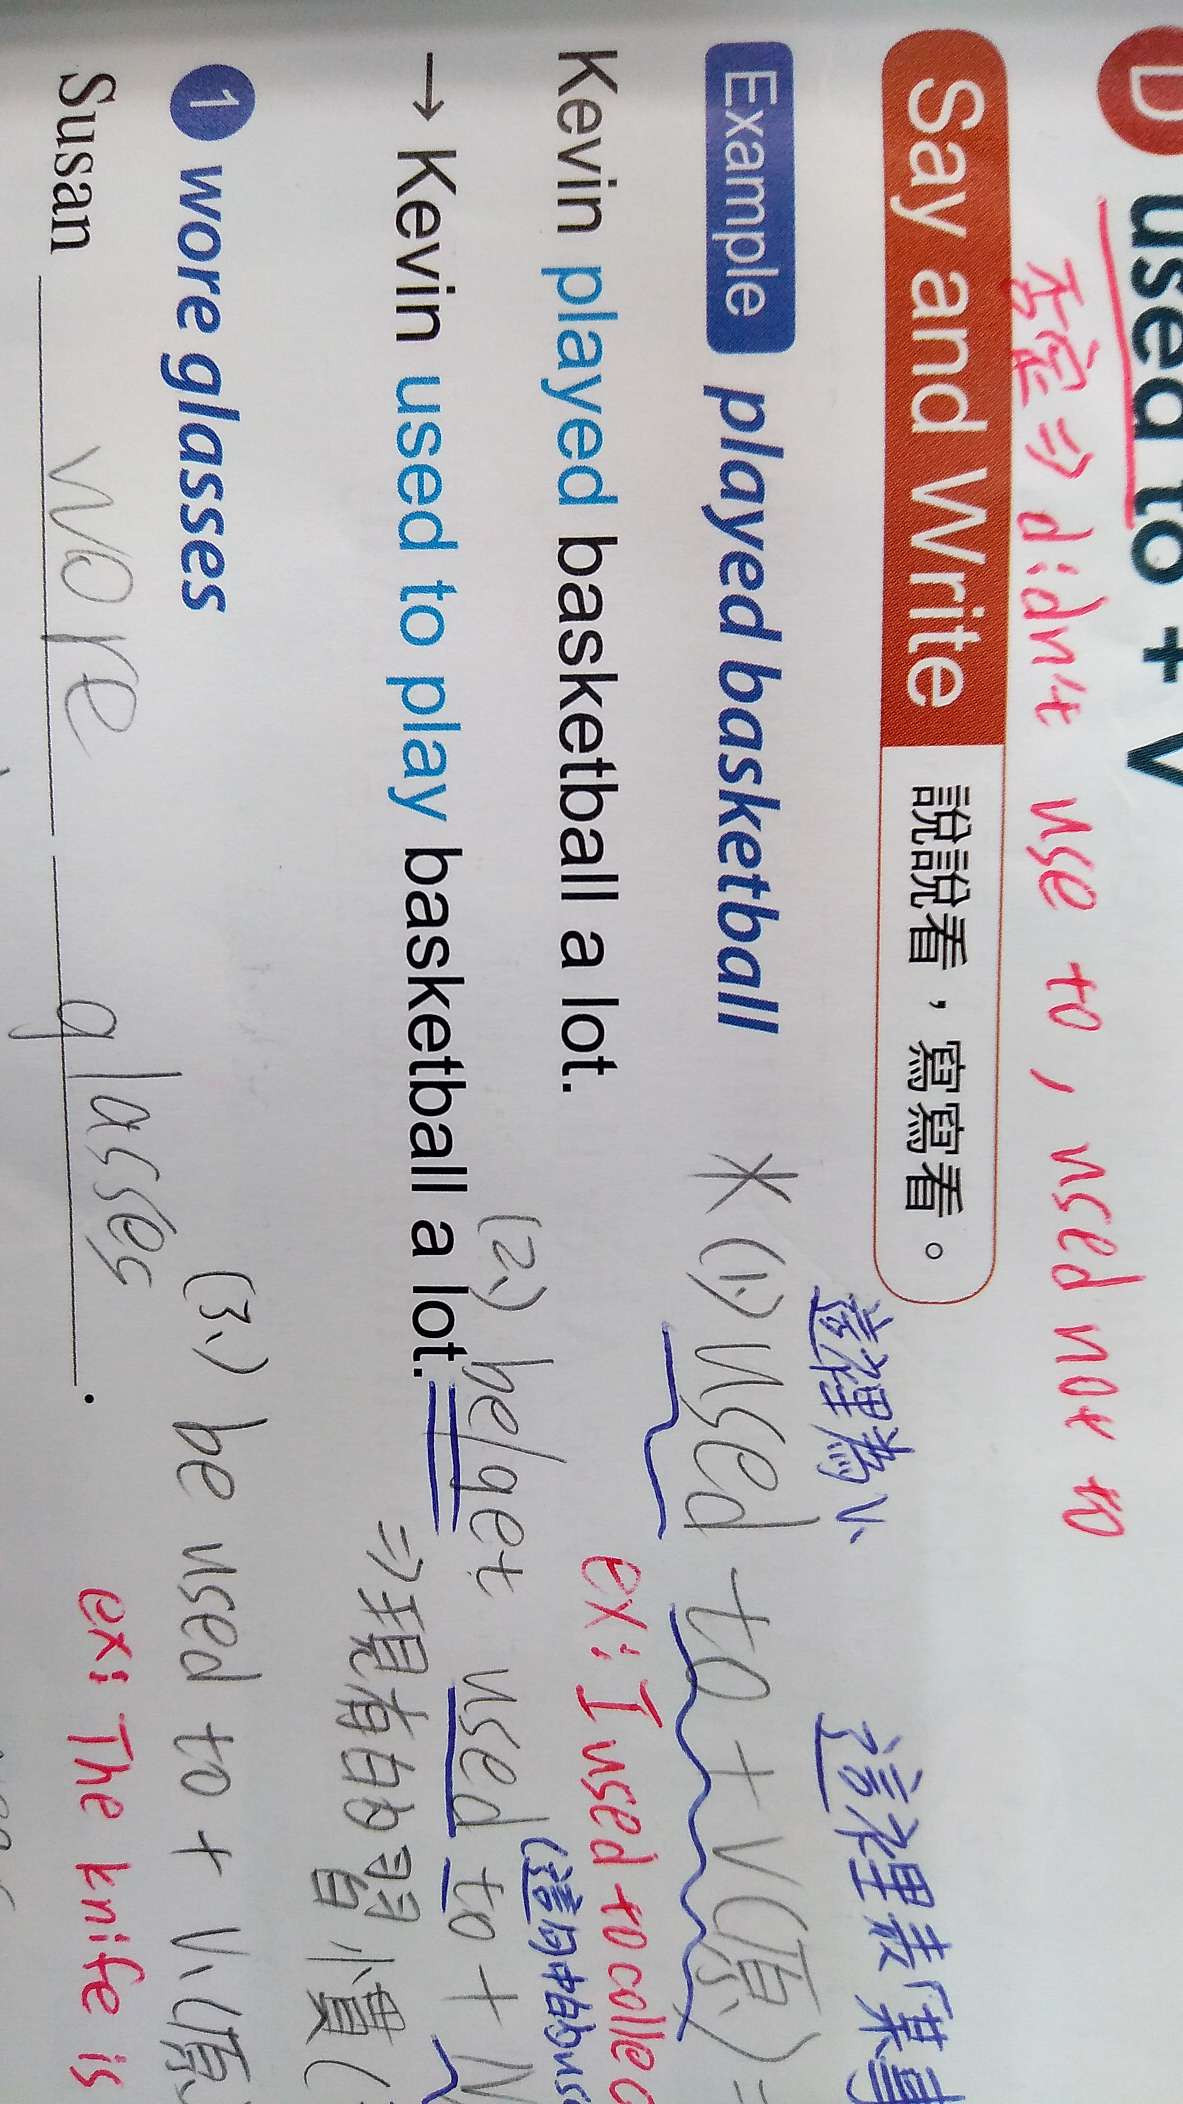 D used to + V
否定⇒ didn't use to, used not to
Say and Write 說說看，寫寫看。
這裡為V.
這裡表「某事
Example played basketball
*(1.) used to + V(原) =
ex: I used to collec
Kevin played basketball a lot.
(這句中的use
(2.) be/get used to + N
→ Kevin used to play basketball a lot.
⇒現有的習慣(
(3.) be used to + V.(原)
1 wore glasses
ex: The knife is
Susan wore glasses.